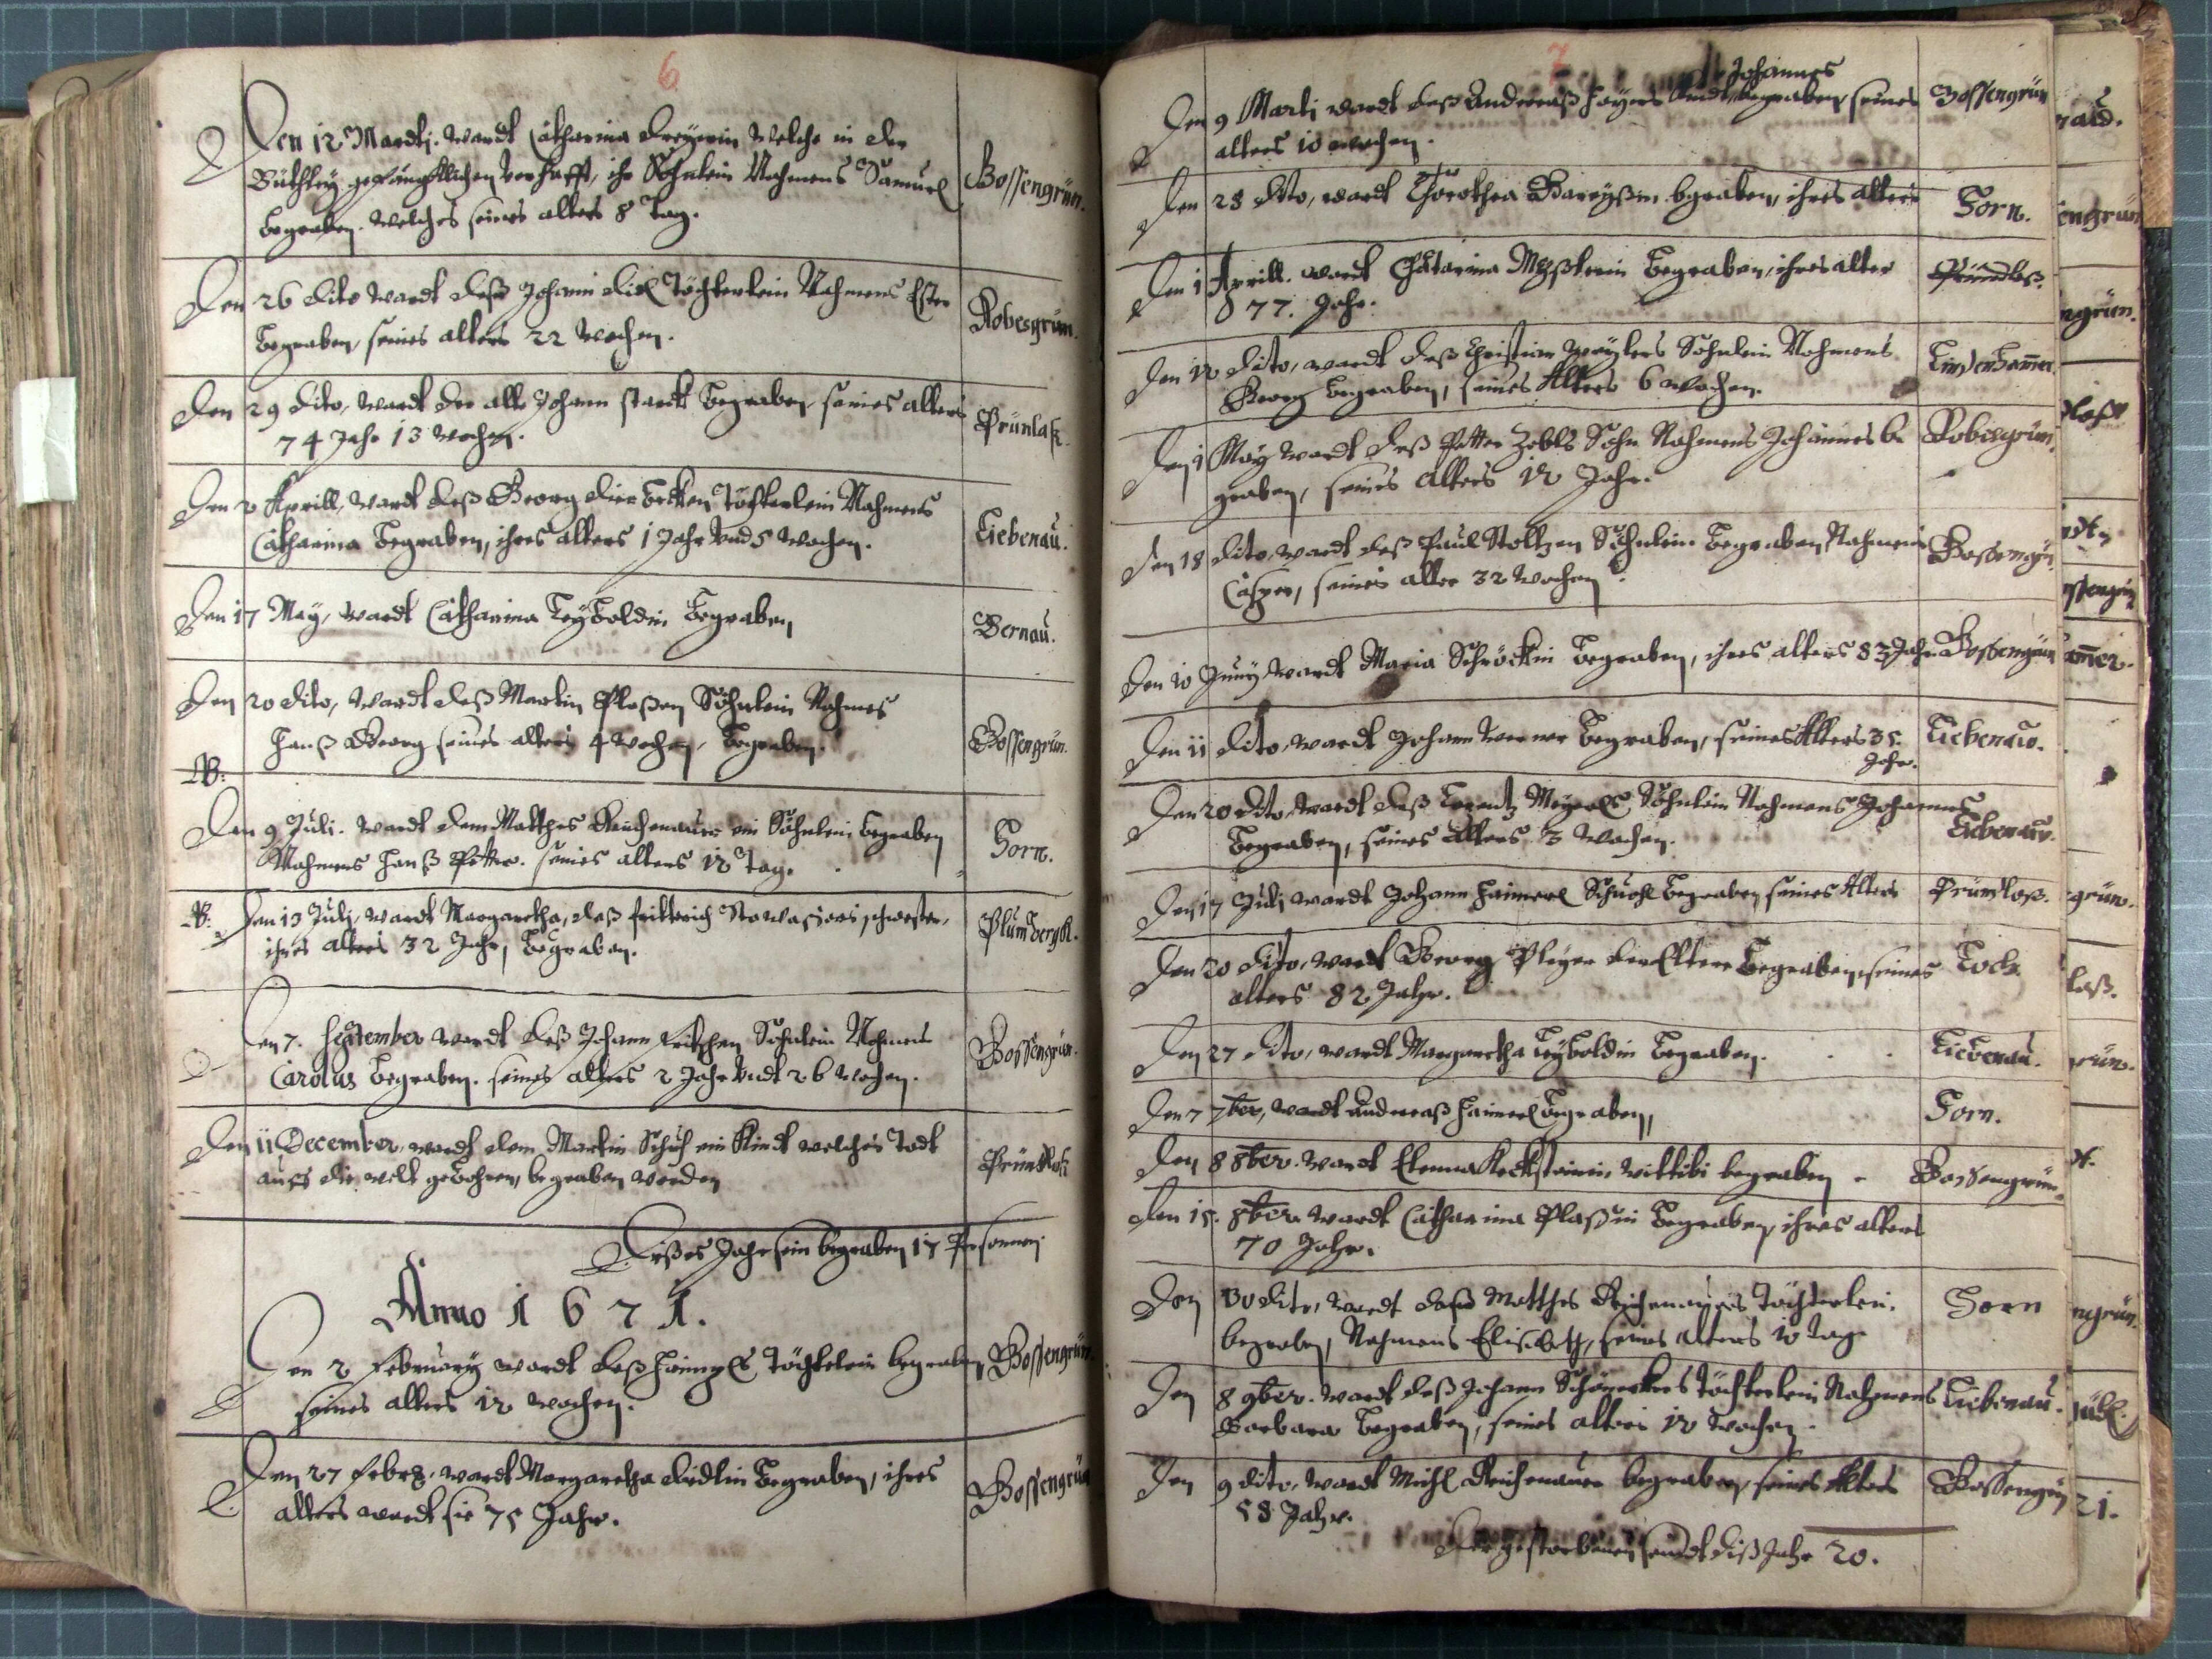 6
Den 12 Martij. wardt Catharina Dreyerin welche in der
Büthley gefänglichen verhafft, ihr Söhnlein Nahmens Samuel
begraben. welches seines alters 8 Tag.
Bossengrün.
Den 26 dito wardt deß Johann Töchterlein Nahmens Ester
begraben, seines alters 22 Wochen.
Robesgrün.
Den 29 dito, wardt der alte Johann starck begraben seines alters
74 Jahr 13 Wochen.
Prünlaß.
Den 2 Aprill, wardt deß Georg Töchterlein Nahmens
Catharina begraben, ihres alters 1 Jahr Vnd 5 Wochen.
Liebenau.
Den 17 May, wardt Catharina Leyboldin begraben
Bernau.
Den 20 dito, wardt deß Martin Plaßen Söhnlein Nahmes
Hanß Georg seines alters 4 Wochen, begraben.
Bossengrün.
NB:
Den 9 Juli. wardt dem Matthes Reichenauer ein Söhnlein begraben
Nahmens Hanß Petter. seines alters 12 Tag.
Horn.
NB: Den 13 Julj, wardt Margaretha, deß fritterich schwester,
ihres alters 32 Jahr, begraben.
Plumbergl.
Den 7. September wardt deß Johann Fritschen Söhnlein Nahmens
Carolus begraben. seines alters 2 Jahr Vndt 26 Wochen.
Bossengrün.
Den 11 December, wardt dem Martin Schuh ein Kindt welches Todt
auff die welt gebohren, begraben worden
Pründtlaß
Dießes Jahr sein begraben 17 Personnen.
Anno 1671.
Den 2 February wardt deß Töchtelein begraben
seines alters 12 wochen.
Bossengrün.
Den 27 febrg. wardt Margaretha begraben, ihres
alters wardt sie 75 Jahr.
Bossengrün
7
Johannes
Den 9 Martij wardt deß Andreaß Hoyers Kindt, begraben, seines
alters 10 wochen.
Bossengrün
Den 28 dito, wardt Dorothea begraben, ihres alters
Horn.
Den 1 Aprill. wardt Chatarina begraben, ihres alter
77. Jahr.
Pründtlaß.
Den 12 dito, wardt deß Christian Söhnlein Nahmens
Georg begraben, seines Alters 6 wochen.
Den 1 May wardt deß Petter Sohn Nahmens Johannes be
graben, seines alters 12 Jahr.
Robesgrün.
Den 18 dito, wardt deß Paul Stoltzen Söhnlein begraben Nahmens
Casper, seines alter 32 Wochen
Bossengrün
Den 10 Juny wardt Maria Schröckin begraben, ihres alters 83 Jahr
Bossengrün
Den 11 dito, wardt Johann Werner begraben, seines Alters 35.
Jahr.
Liebenau.
Den 20 dito, wardt deß Lorentz Söhnlein Nahmens Johannes
begraben, seines Alters 3 wochen.
Liebenau.
Den 17 Julj wardt Johann Haimerl Schuch begraben seines Alters
Prümlaß.
Den 20 dito, wardt Georg Pleyer der Eltere begraben, seines
alters 82 Jahr.
Loch
Den 27 dito, wardt Margaretha Leyboldin begraben.
Liebenau.
Den 7 7ber, wardt Andreaß Haimerl begraben,
Horn.
Den 8 8ber. wardt wittibi begraben
Bossengrün.
Den 15. 8ber wardt Catharina Plaßin begraben, ihres alters
70 Jahr.
Den 30 dito, wardt deß Matthes Reichenauers Töchterlein.
begraben, Nahmens Elisabeth, seines alters 10 Tag
Horn
Den 8 9ber. wardt deß Johann Töchterlein Nahmens
Barbara begraben, seines alters 12 Wochen.
Liebenau.
Den 9 dito, wardt Michl Reichenauer begraben, seines Alters
58 Jahr.
Bossengrün
Der gestorbenen seindt diß Jahr 20.